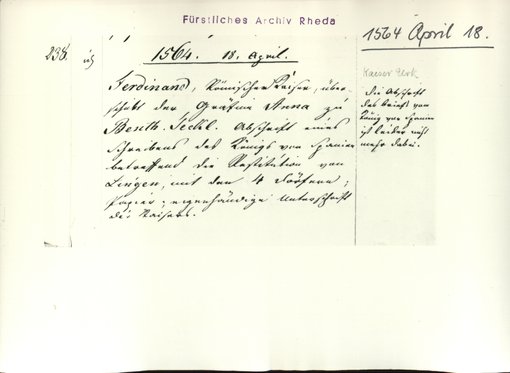 Fürstliches Archiv Rheda
1564 April 18.
238.
1564. 18. April.
Ferdinand, Römischer Kaiser, über-
schickt der Gräfin Anna zu
Benth. Teckl. Abschrift eines
Schreibens des Königs von Spanien
betreffend die Restitution von
Lingen, mit den 4 Dörfern;
Papier; eigenhändige Unterschrift
des Kaisers.
Kaiser
Die Abschrift
des Briefs vom
König von Spanien
ist leider nicht
mehr dabei.